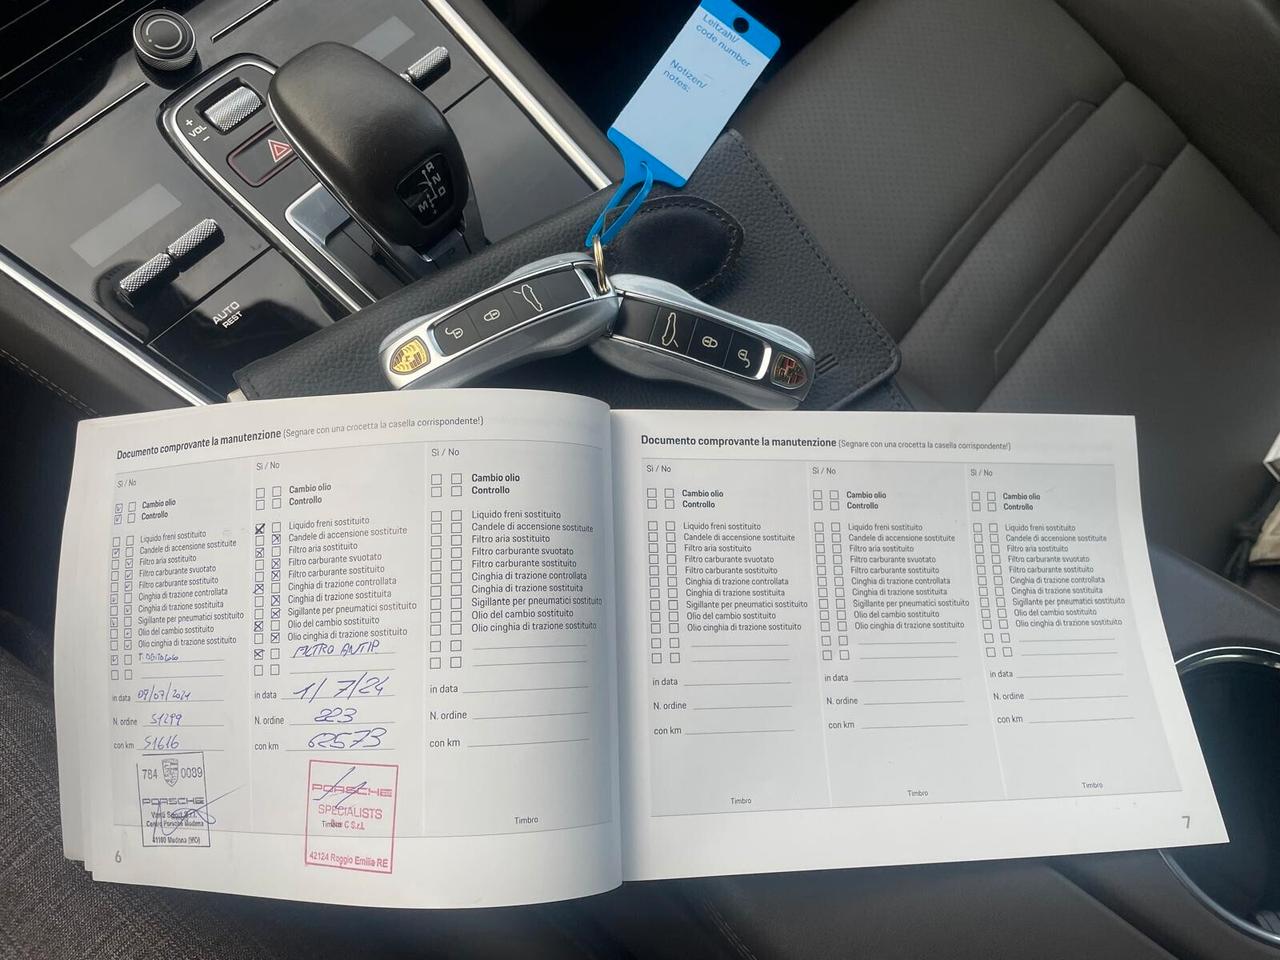 Leitzahl/
code number
Notizen/
notes:
+
VOL
-
R
N
D
M
AUTO
REST
Documento comprovante la manutenzione (Segnare con una crocetta la casella corrispondente!)
Sì / No
Cambio olio
Controllo
Liquido freni sostituito
Candele di accensione sostituite
Filtro aria sostituito
Filtro carburante svuotato
Filtro carburante sostituito
Cinghia di trazione controllata
Cinghia di trazione sostituita
Sigillante per pneumatici sostituito
Olio del cambio sostituito
Olio cinghia di trazione sostituito
in data 09/07/2021
N. ordine 51299
con km 51616
784 0039
PORSCHE
Centro Porsche Modena
41100 Modena (MO)
6
Sì / No
Cambio olio
Controllo
Liquido freni sostituito
Candele di accensione sostituite
Filtro aria sostituito
Filtro carburante svuotato
Filtro carburante sostituito
Cinghia di trazione controllata
Cinghia di trazione sostituita
Sigillante per pneumatici sostituito
Olio del cambio sostituito
Olio cinghia di trazione sostituito
FILTRO ANTIP
in data 1/7/24
N. ordine 223
con km 62573
PORSCHE
SPECIALISTS
C S.r.l.
42124 Reggio Emilia RE
Sì / No
Cambio olio
Controllo
Liquido freni sostituito
Candele di accensione sostituite
Filtro aria sostituito
Filtro carburante svuotato
Filtro carburante sostituito
Cinghia di trazione controllata
Cinghia di trazione sostituita
Sigillante per pneumatici sostituito
Olio del cambio sostituito
Olio cinghia di trazione sostituito
in data
N. ordine
con km
Timbro
Documento comprovante la manutenzione (Segnare con una crocetta la casella corrispondente!)
Sì / No
Cambio olio
Controllo
Liquido freni sostituito
Candele di accensione sostituite
Filtro aria sostituito
Filtro carburante svuotato
Filtro carburante sostituito
Cinghia di trazione controllata
Cinghia di trazione sostituita
Sigillante per pneumatici sostituito
Olio del cambio sostituito
Olio cinghia di trazione sostituito
in data
N. ordine
con km
Timbro
Sì / No
Cambio olio
Controllo
Liquido freni sostituito
Candele di accensione sostituite
Filtro aria sostituito
Filtro carburante svuotato
Filtro carburante sostituito
Cinghia di trazione controllata
Cinghia di trazione sostituita
Sigillante per pneumatici sostituito
Olio del cambio sostituito
Olio cinghia di trazione sostituito
in data
N. ordine
con km
Timbro
Sì / No
Cambio olio
Controllo
Liquido freni sostituito
Candele di accensione sostituite
Filtro aria sostituito
Filtro carburante svuotato
Filtro carburante sostituito
Cinghia di trazione controllata
Cinghia di trazione sostituita
Sigillante per pneumatici sostituito
Olio del cambio sostituito
Olio cinghia di trazione sostituito
in data
N. ordine
con km
Timbro
7